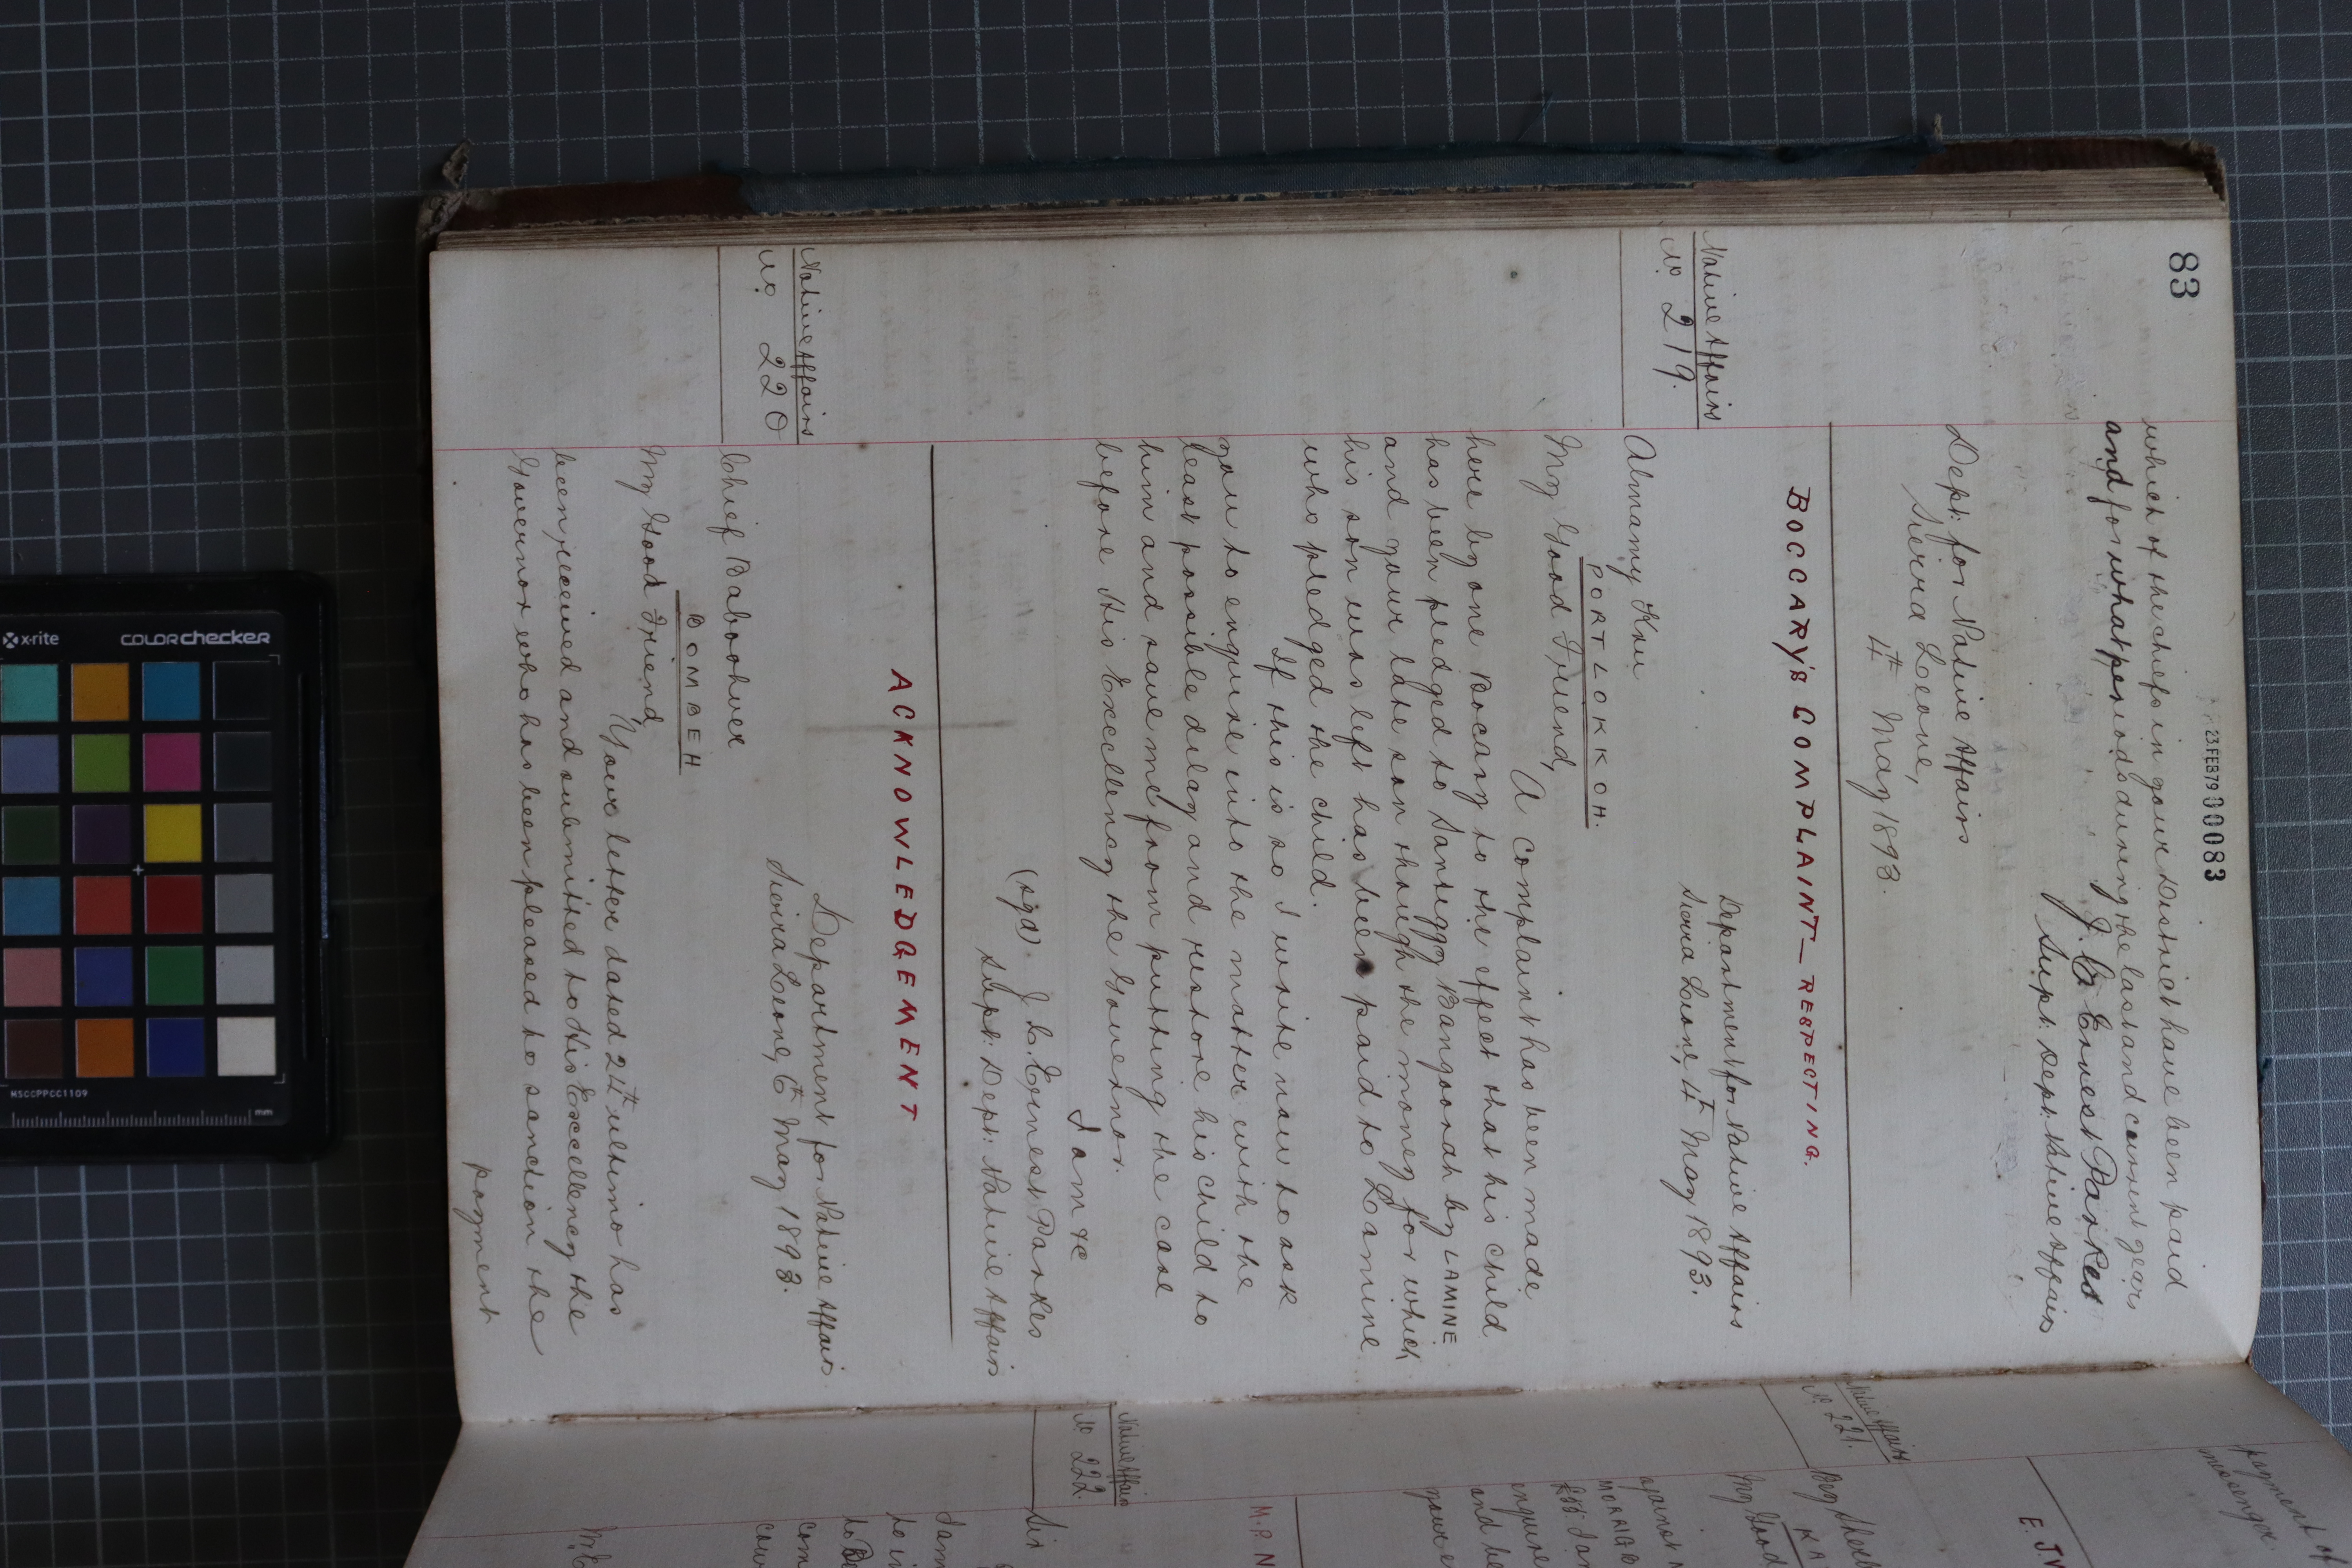 83
23 FEB 79 00083
which of the chiefs in your District have been paid
and for what periods during the last and current years
J. C. Ernest Parkes
Supt. Dept. Native Affairs
Dept. for Native Affairs
Sierra Leone,
4th May 1893.
BOCCARY'S COMPLAINT — RESPECTING.
Native Affairs
No. 219.
Department for Native Affairs
Sierra Leone, 4th May 1893.
Almamy
PORT LOKKOH.
My Good Friend,
A complaint has been made
here by one Bocary to the effect that his child
has been pledged to Santiggy Bangoorah by LAMINE
and your late son though the money for which
his son was left has been paid to Lamine
who pledged the child.
If this is so I write now to ask
you to enquire into the matter with the
least possible delay and restore his child to
him and save me from putting the case
before His Excellency the Governor.
I am &c
(sgd) J. C. Ernest Parkes
Supt. Dept. Native Affairs
ACKNOWLEDGEMENT
Native Affairs
No. 220
Department for Native Affairs
Sierra Leone, 6th May 1893.
Chief
BOMBEH
My Good Friend,
Your letter dated 24th ultimo has
been received and submitted to His Excellency the
Governor who has been pleased to sanction the
payment
payment of
messenger
E. J. W
Native Affairs
No. 221.
My Good
against
enquire
and be
your
M. P. N
Native Affairs
No. 222.
Sir
to in
com